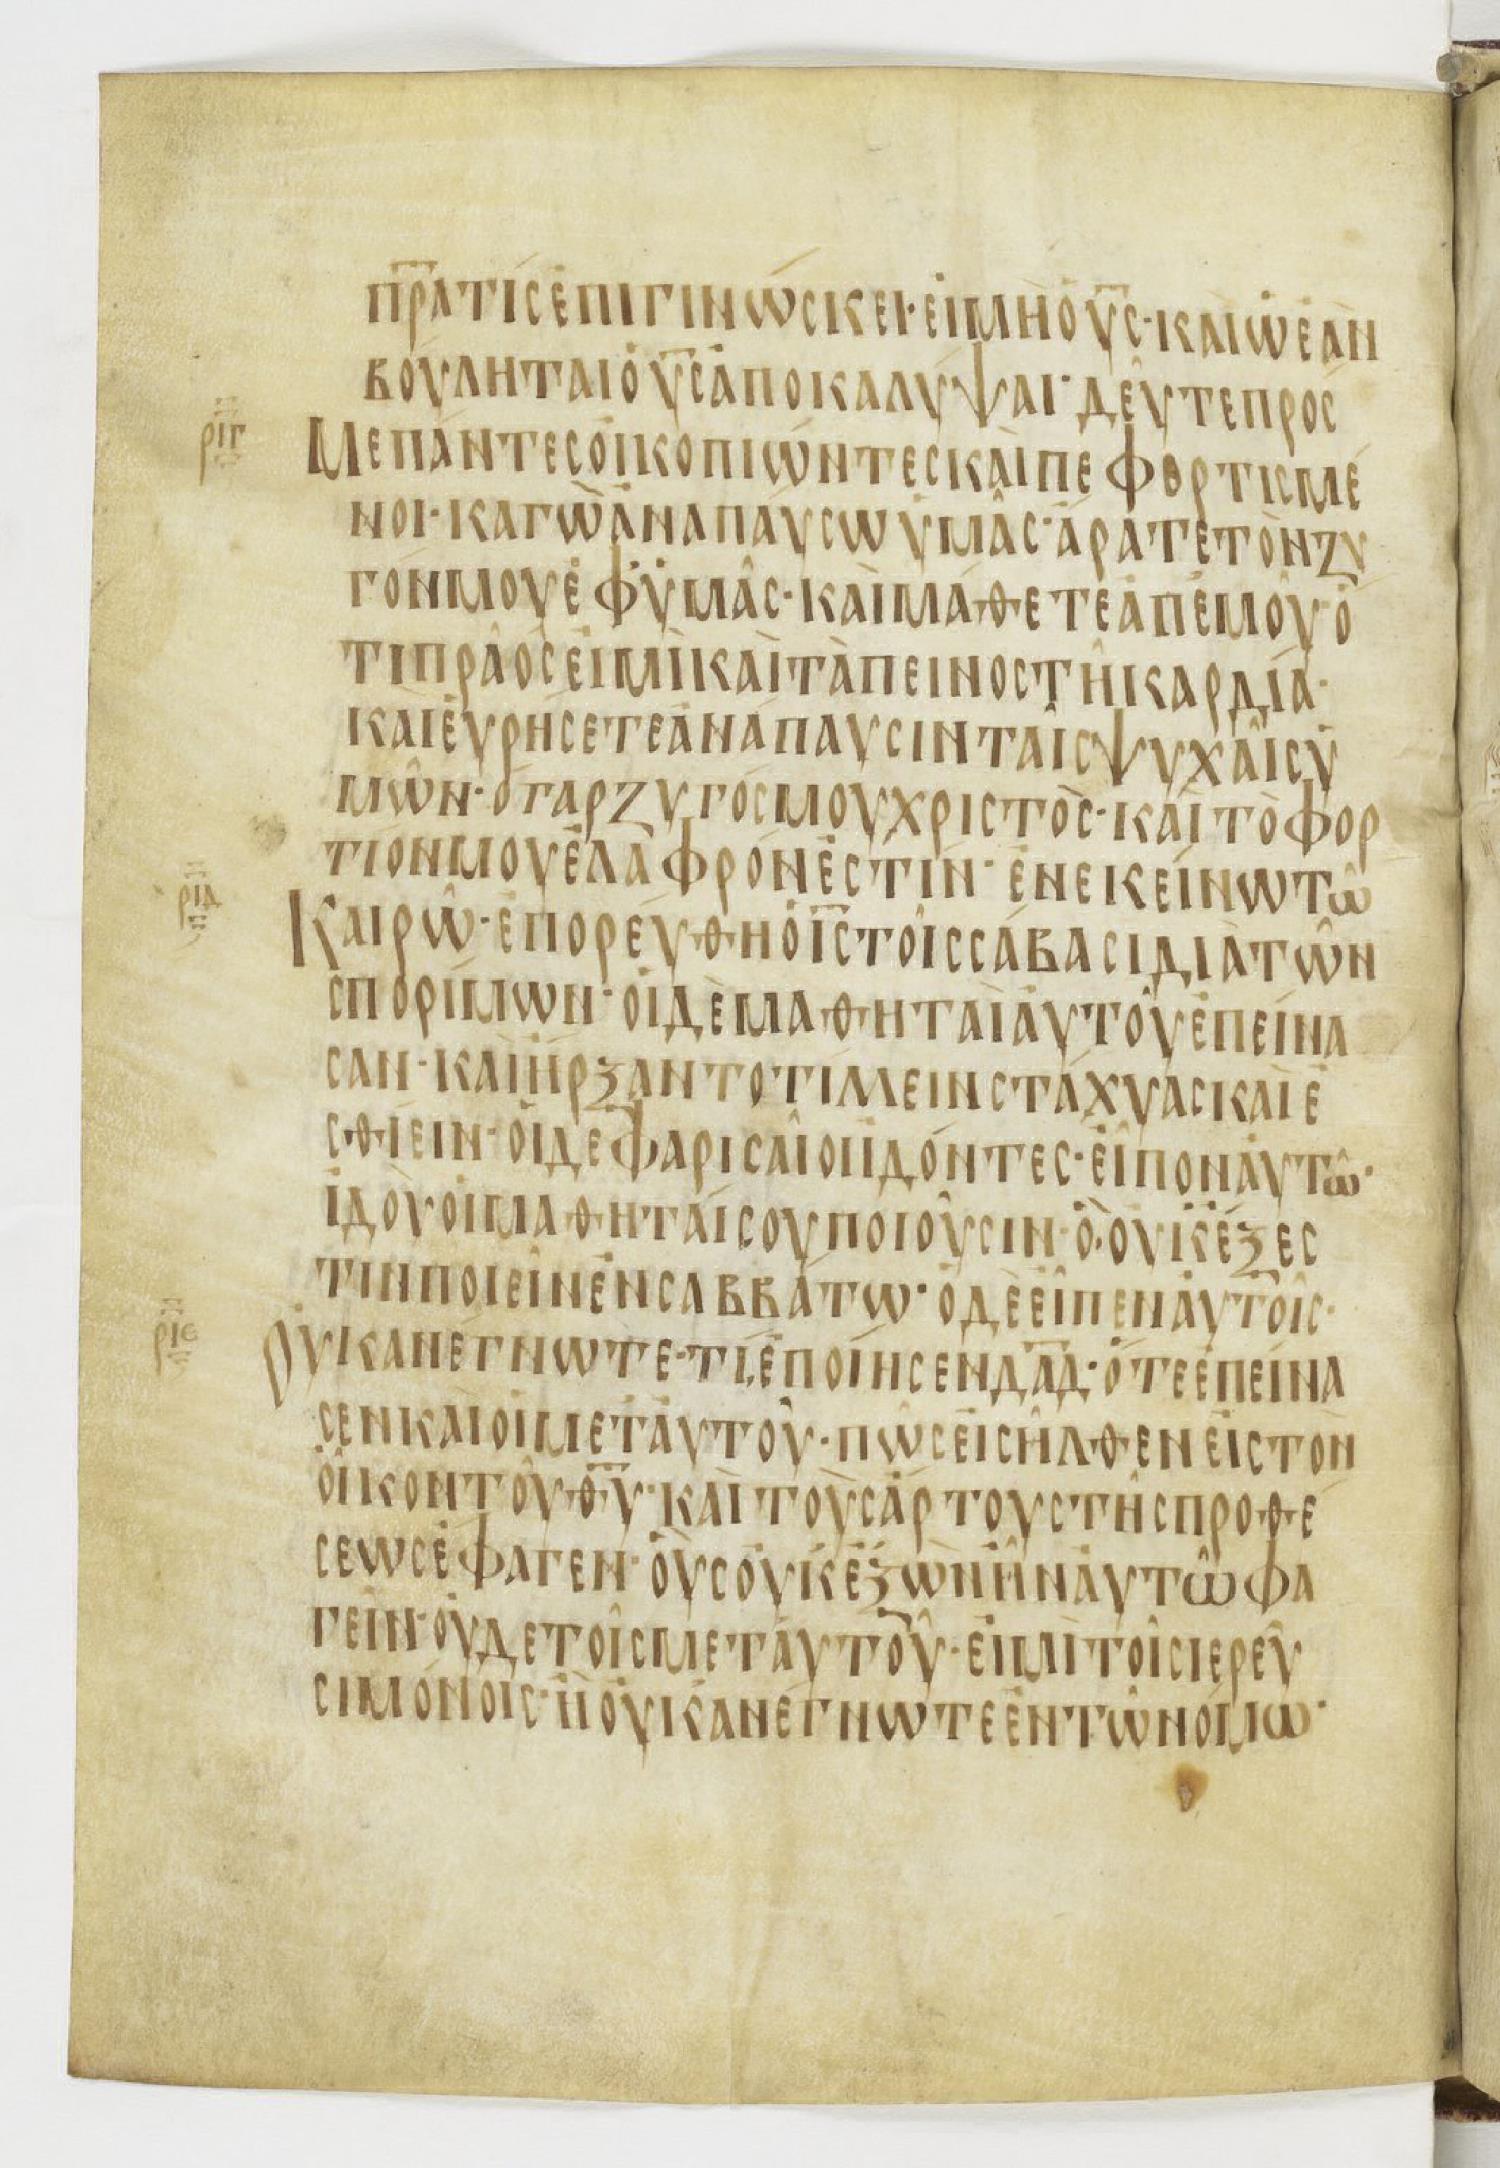 π̅ρ̅α̅ τίς ἐπιγινώσκει· εἰ μὴ ὁ υ̅ς̅· καὶ ὧ ἐὰν
βούληται ὁ υ̅ς̅ ἀποκαλύψαι· δεῦτε πρός
ριγ Με πάντες ὁι κοπιῶντες καὶ πεφορτισμέ
νοι· καγὼ ἀναπάυσω ὑμᾶς· ἄρατε τὸν ζυ
γόν μου ἐφ ὑμᾶς· καὶ μάθετε ἀπ ἐμοῦ ὅ
τι πρᾶός εἰμὶ καὶ τὰπεινος τῆ καρδία·
καὶ ἑυρήσετε ἀνάπαυσιν ταῖς ψυχᾶις ὑ
μῶν· ὁ γαρ ζυγός μου χριστὸς· καὶ τὸ φορ
τίον μου ἐλαφρόν ἐστίν· ἐν εκείνω τῶ
ριδ Καιρῶ· ἐπορέυθη ὁ ι̅ς̅ τοῖς σάβασι διὰ τῶν
σπορίμων· ὁι δὲ μαθηταὶ ἀυτοῦ ἐπείνα
σαν· καὶ ἤρξαντο τίλλειν στάχυας καὶ ἐ
σθίειν· ὁι δε φαρισαῖοι ἰδόντες· εἶπον ἀυτῶ·
ἰδὸυ ὁι μαθηταί σου ποιοῦσιν· ὃ· ὀυκ ἔξες
τιν ποιεῖν ἐν σαββάτω· ὁ δὲ εἶπεν ἀυτοῖς·
ριε Ουκ ανέγνωτε· τί ἐποίησεν δ̅α̅δ̅· ὅτε ἐπείνα
σεν και ὁι μετ ἀυτοῦ· πῶς εἰσῆλθεν εἰς τὸν
ὂικον τοῦ θ̅υ̅· καὶ τοὺς ἄρτους τῆς προθέ
σεως ἔφαγεν· ὃυς ὀυκ ἐξὼν ἦν ἀυτῶ φα
γεῖν· ὀυδε τοῖς μετ ἀυτοῦ· ἐι μὶ τοῖς ιερεῦ
σι μόνοις· ἢ ὀυκ ἀνέγνωτε ἐν τῶ νόμω·